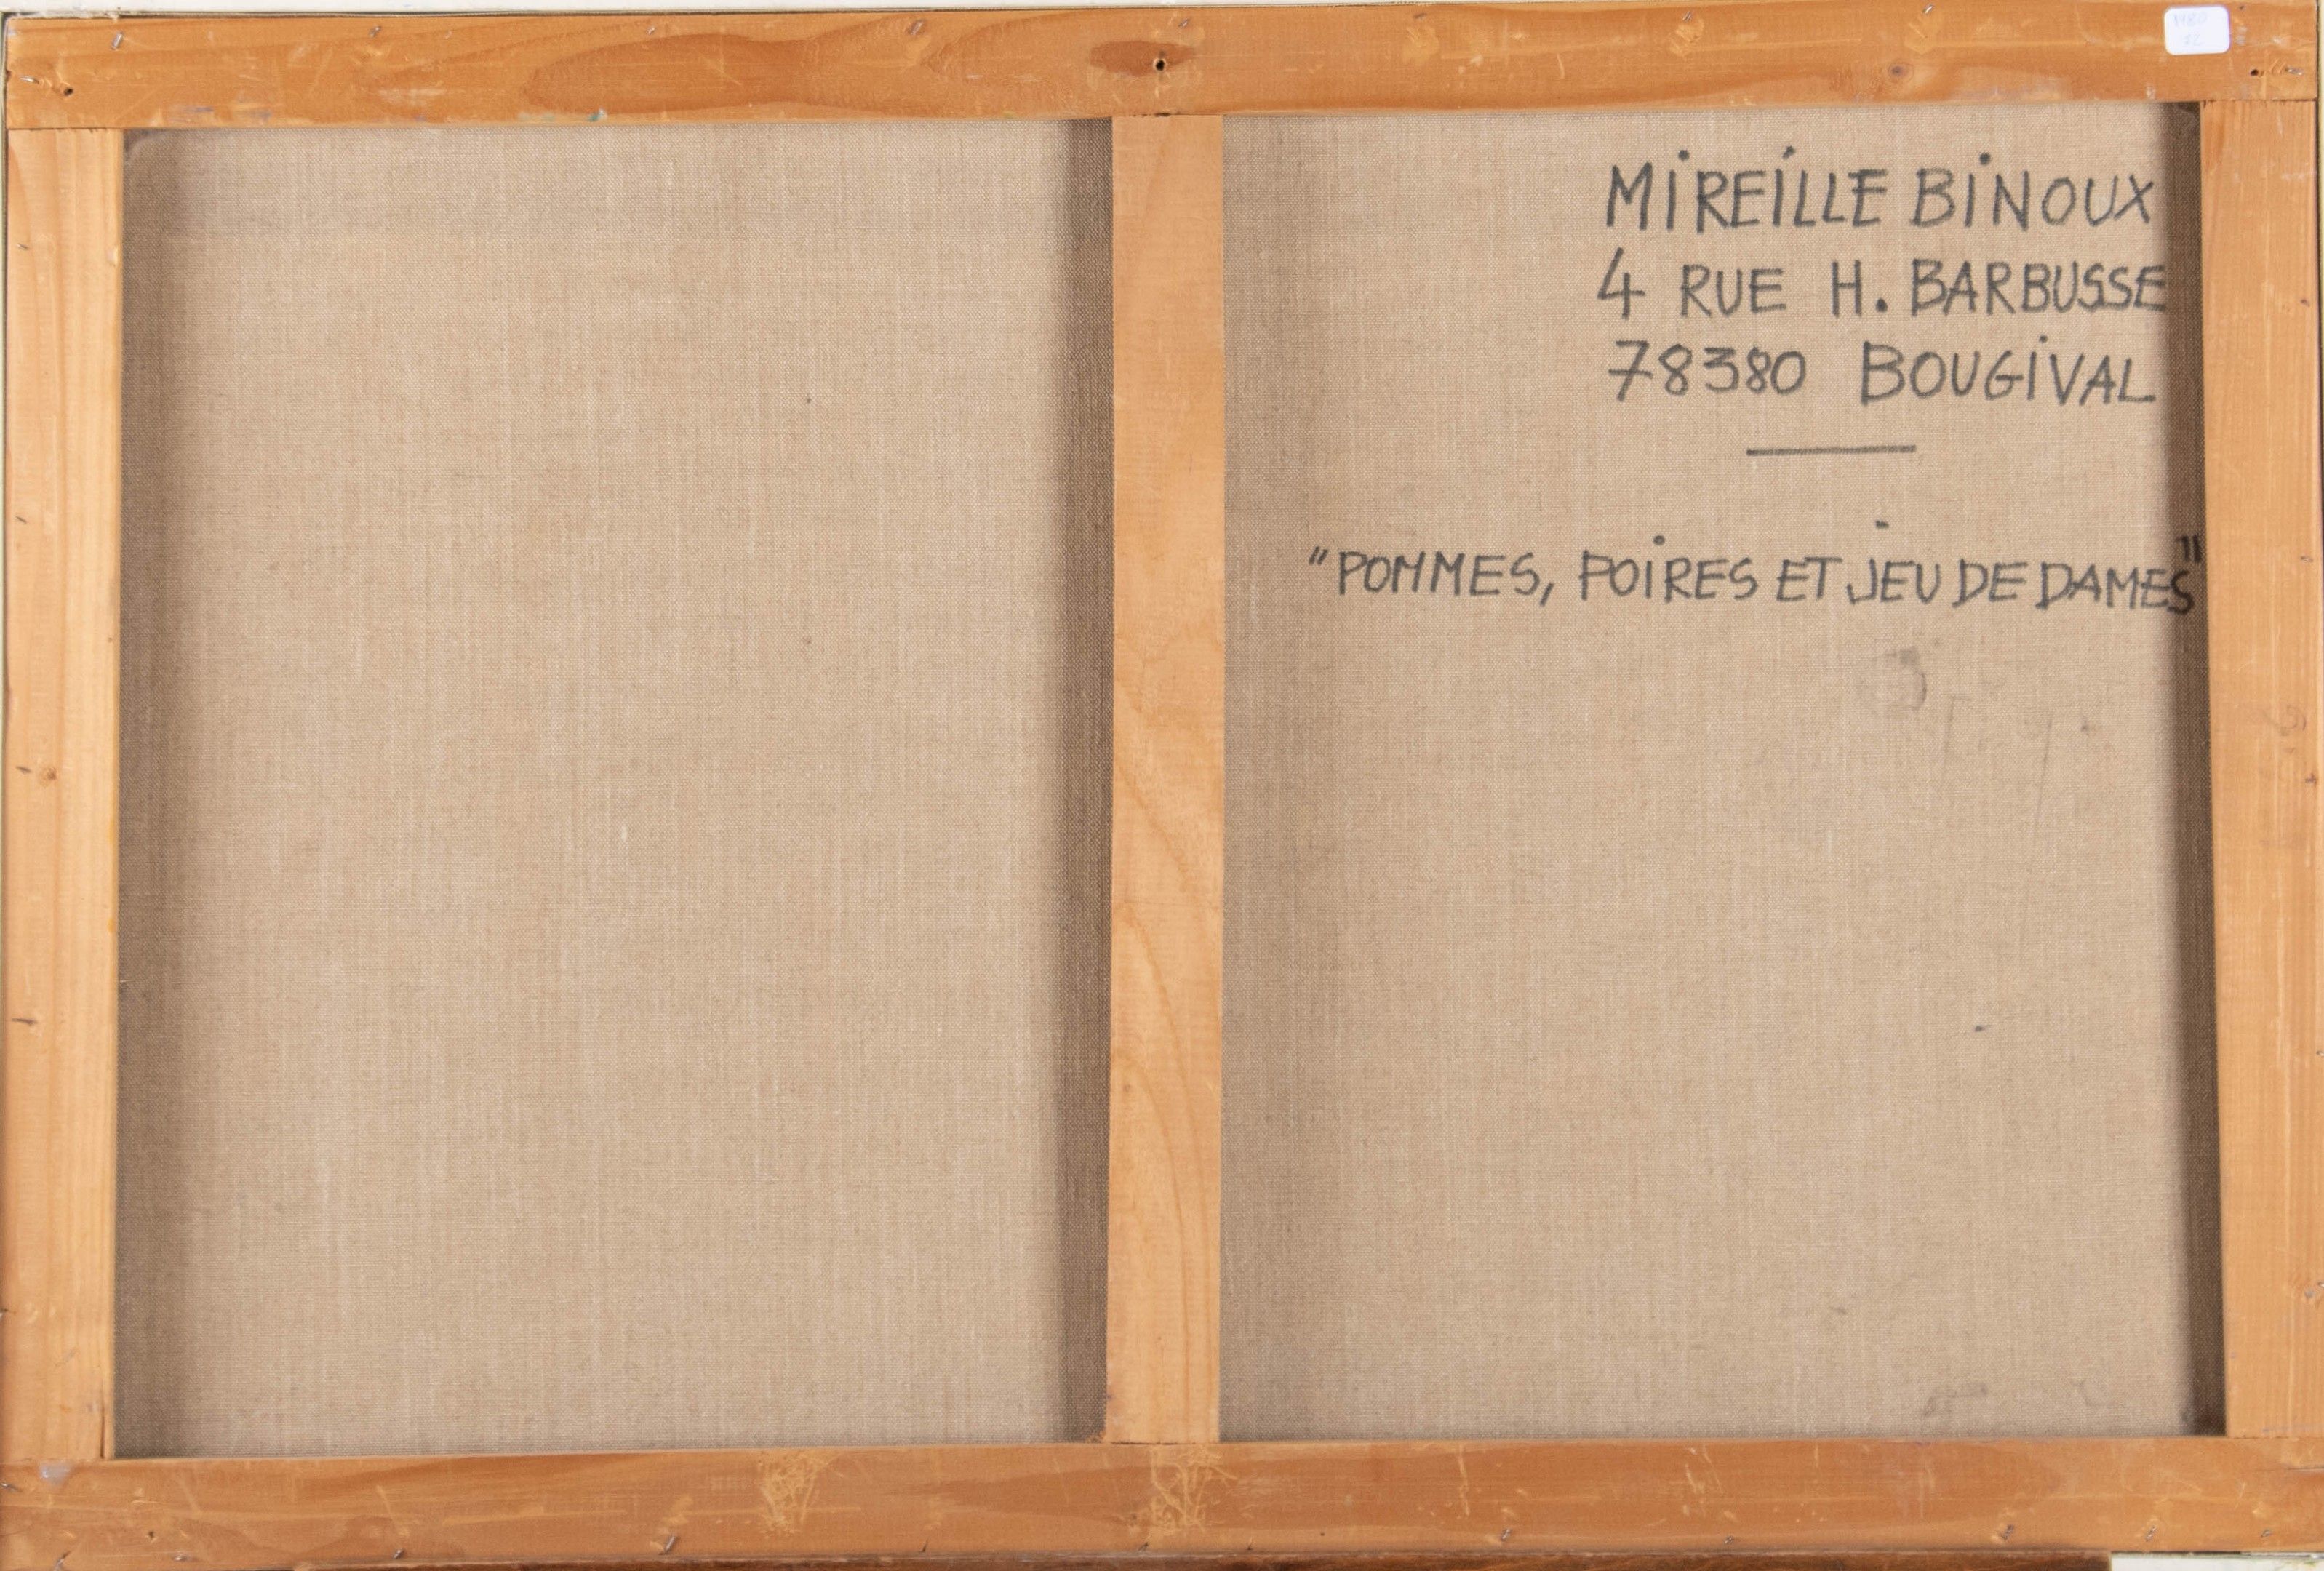 MIREILLE BINOUX
4 RUE H. BARBUSSE
78380 BOUGIVAL
"POMMES, POIRES ET JEU DE DAMES"